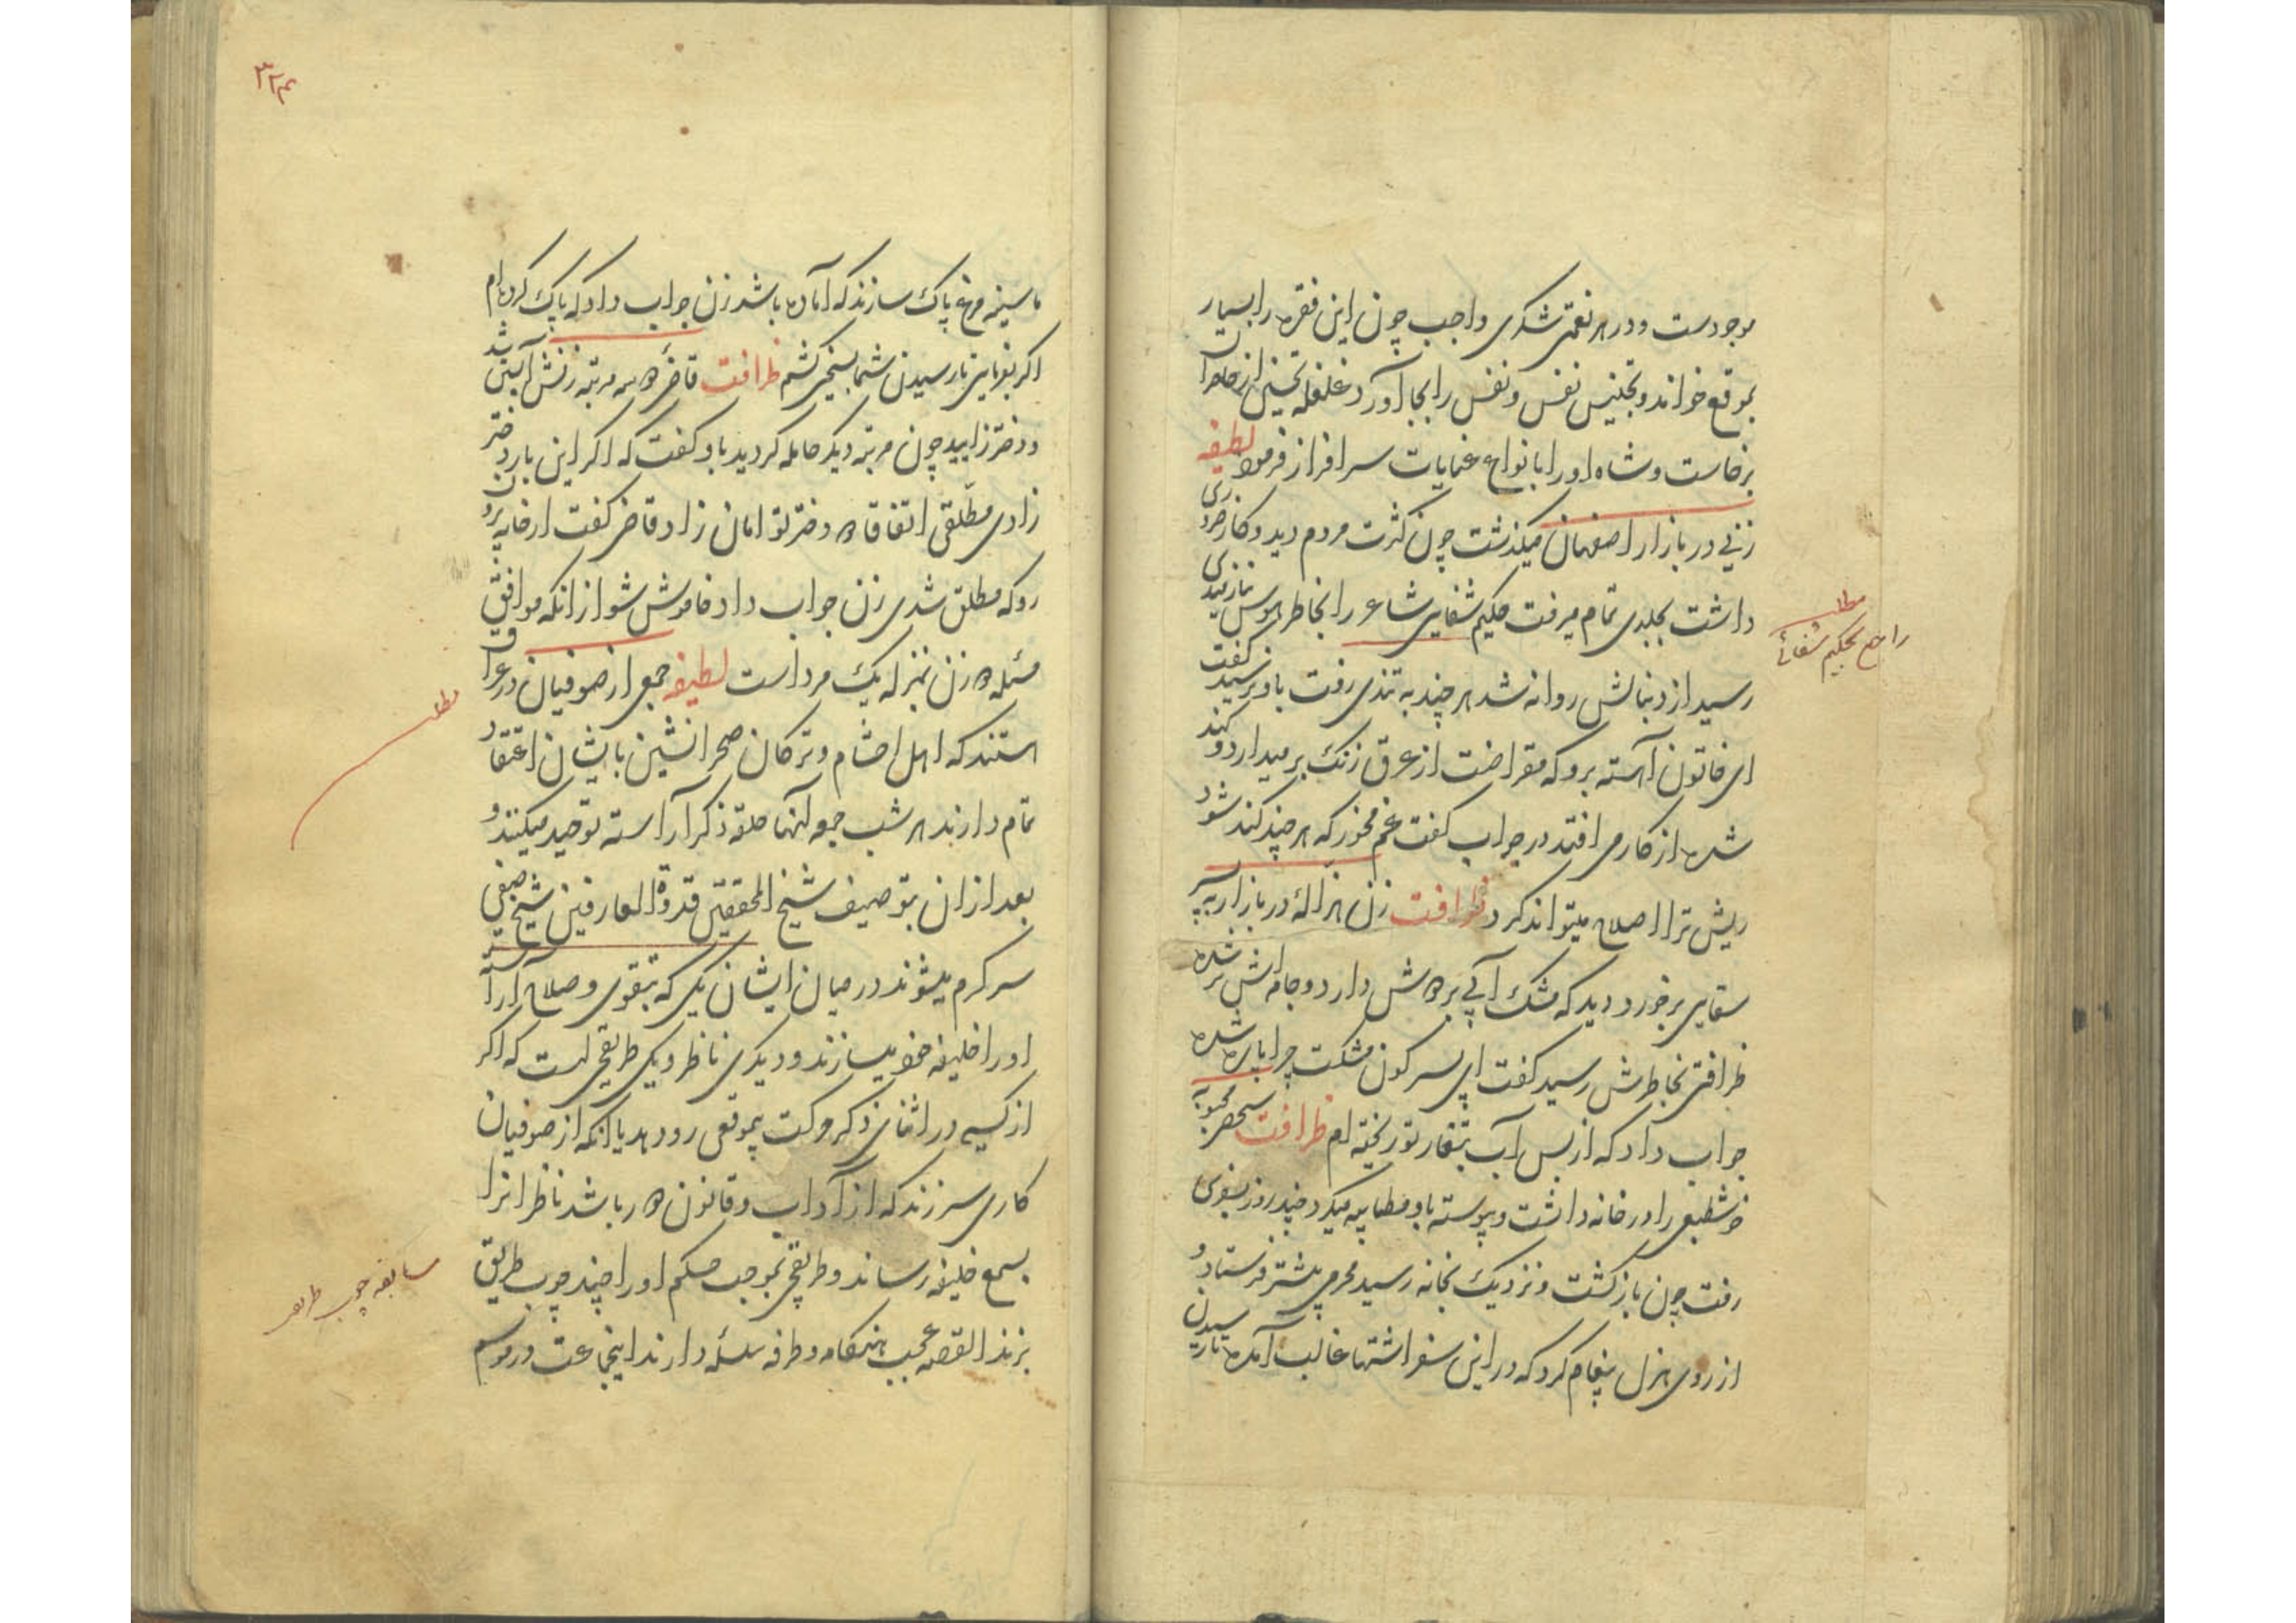 موجودست و در هر نعمتی شکری واجب چون این فقره را بسیار
بموقع خواند و تجنیس نفس و نفس را بجا آورد غلغله تحسین از حاضران
برخاست و شاه او را بانواع عنایات سرافراز فرمود لطیفه
زنی در بازار اصفهان میگذشت چون کثرت مردم دید و کار ضروری
داشت بجلدی تمام میرفت حکیم شفایی شاعر را بخاطر هوس
رسید از دنبالش روانه شد هر چند به تندی رفت باو نرسید گفت
ای خاتون آهسته برو که مقراضت از عرق زنک برمیدارد و کند
شده از کار می افتد در جواب گفت غم مخور که هر چند کند شود
ریش ترا اصلاح میتواند کرد ظرافت زن هزاله در بازار به پسر
سقایی برخورد دید که مشک آبی بر دوش دارد و جامه اش تر شده
ظرافتی بخاطرش رسید گفت ای پسر کون مشکت چرا پاره شده
جواب داد که از بس آب بتغار تو ریخته ام ظرافت شخصی محبوبه
خوشطبعی را در خانه داشت و پیوسته باو مطایبه میکرد چند روز بسفری
رفت چون بازگشت و نزدیک بخانه رسید محرمی پیشتر فرستاد و
از روی هزل پیغام کرد که در این سفر اشتها غالب آمده تا رسیدن
مطلب
راجع بحکیم شفائی
۳۲۴
ما سینه مرغ پاک سازند که آماده باشد زن جواب داد که پاک کرده ام
اگر بفرمایی تا رسیدن شما بسیخی کشم ظرافت قاضی دو سه مرتبه زنش آبستن شد
و دختر زایید چون مرتبه دیکر حامله کردید باو کفت که اکر این بار دختر
زادی مطلقی اتفاقا دو دختر توامان زاد قاضی کفت از خانه بیرون
رو که مطلق شدی زن جواب داد خاموش شو از آنکه موافق
مسئله دو زن بمنزله یک مرد است لطیفه جمعی از صوفیان در عراق
هستند که اهل احشام و ترکان صحرانشین بایشان اعتقاد
تمام دارند هر شب جمعه آنها حلقه ذکر آراسته توحید میکنند و
بعد از ان بتوصیف شیخ المحققین قدوة العارفین شیخ صفی
سرکرم میشوند در میان ایشان یکی که بتقوی و صلاح آراسته
او را خلیفه خود میسازند و دیکری ناظر و یکی طریقچی است که اکر
از کسی در اثنای ذکر حرکت بیموقعی رو دهد یا آنکه از صوفیان
کاری سر زند که از آداب و قانون دور باشد ناظر انرا
بسمع خلیفه رساند و طریقچی بموجب حکم او را چند چوب طریق
بزند القصه عجب هنکامه و طرفه سلسله دارند اینجماعت در موسم
مطلب
سابقه چوب طریق